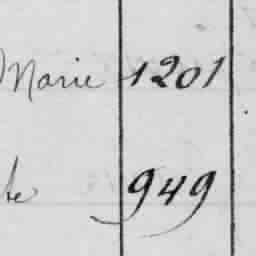 Marie 1201
949